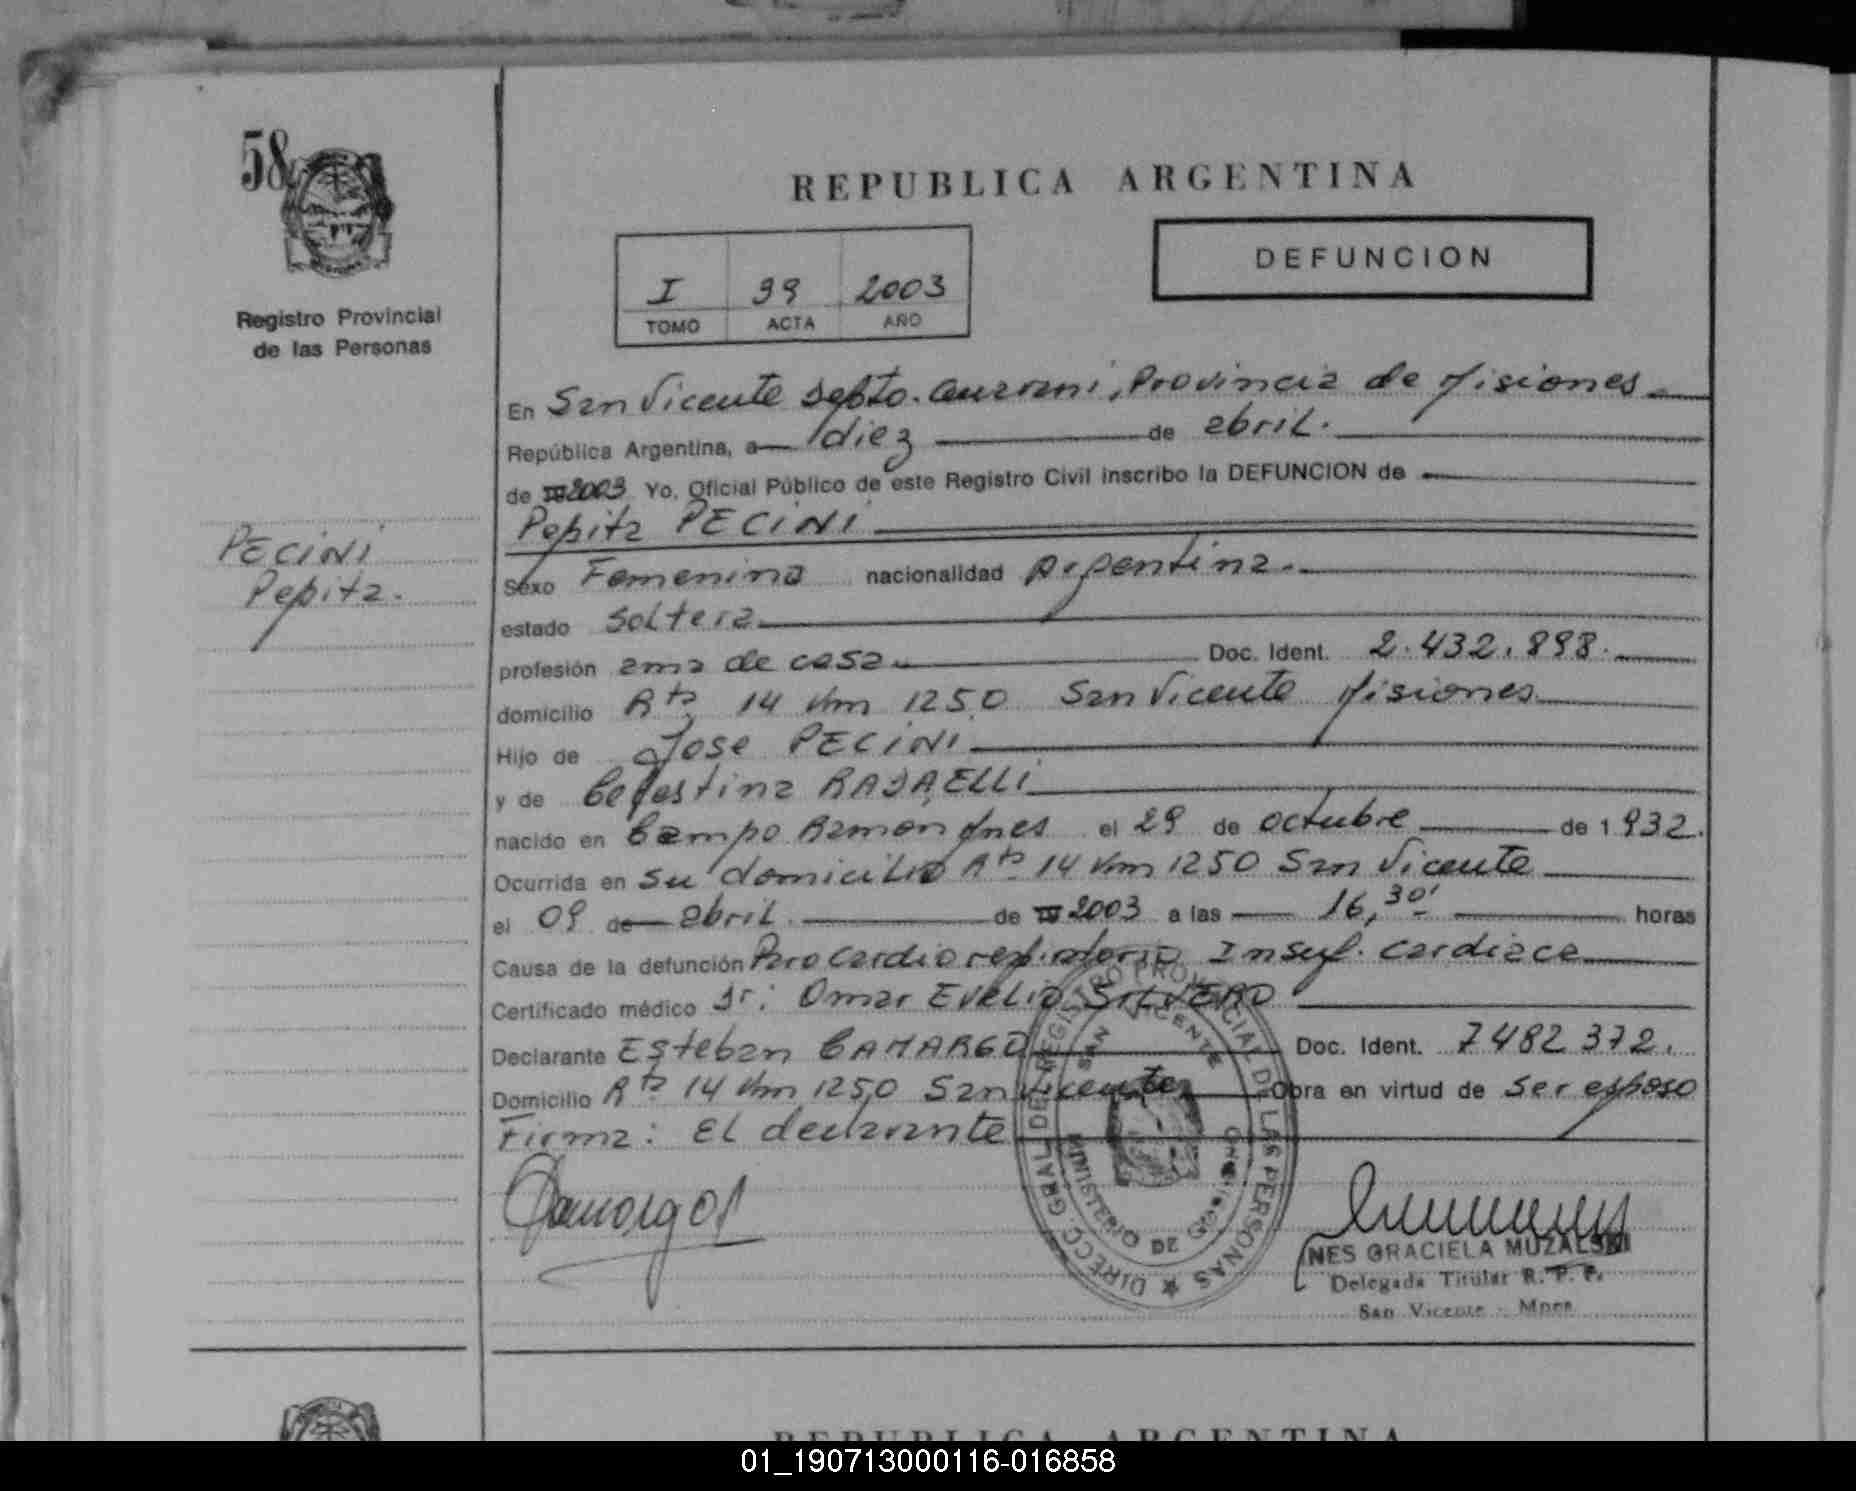 58
REPUBLICA ARGENTINA
DEFUNCION
I 39 2003
TOMO ACTA AÑO
Registro Provincial
de las Personas
En San Vicente Depto. Guarani, Provincia de Misiones
República Argentina, a diez de abril.
de 2003 Yo, Oficial Público de este Registro Civil inscribo la DEFUNCION de
Pepita PECINI
PECINI
Pepita.
Sexo Femenino nacionalidad Argentina.
estado soltera
profesión ama de casa Doc. Ident. 2.432.898.
domicilio Rta 14 Km 1250 San Vicente Misiones
Hijo de Jose PECINI
y de Celestina
nacido en Campo Ramon el 29 de octubre de 1932.
Ocurrida en su domicilio Rta 14 Km 1250 San Vicente
el 09 de abril de 2003 a las 16,30' horas
Causa de la defunción Paro Cardiorespiratorio Insuf. cardiaca
Certificado médico Dr: Omar Evelio SILVERO
Declarante Esteban CAMARGO Doc. Ident. 7482372.
Domicilio Rta 14 Km 1250 San Vicente Obra en virtud de ser esposo
Firma: El declarante
DIRECC. GRAL. DEL REGISTRO PROVINCIAL DE LAS PERSONAS
SAN VICENTE
MINISTERIO DE GOBIERNO
INES GRACIELA MUZALSKI
Delegada Titular R. P. P.
San Vicente - Mnes.
REPUBLICA ARGENTINA
01_190713000116-016858